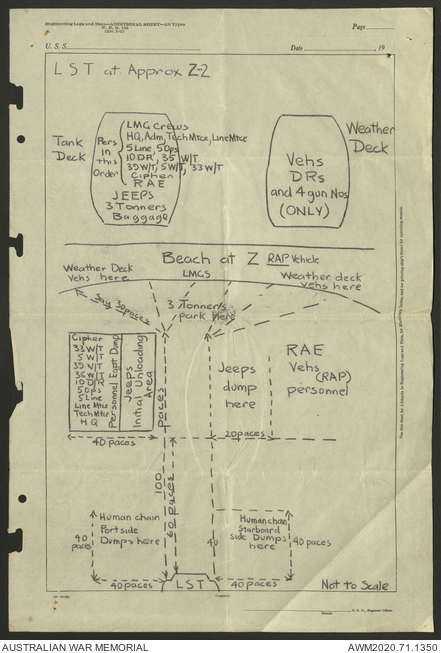 Engineering Logs and Data—ADDITIONAL SHEET—All Types
Page
U. S. S.
Date , 19
LST at Approx Z-2
Tank
Deck
Pers
in
this
Order
LMG Crews
HQ, Adm, Tech Mtce, Line Mtce
5 Line, 5 Ops
10 DR, 35 W/T
39 W/T, 5 W/T, 33 W/T
Cipher
RAE
JEEPS
3 Tonners
Baggage
Weather
Deck
Vehs
DRs
and 4 gun Nos
(ONLY)
Beach at Z RAP Vehicle
Weather Deck
Vehs here
LMGS
Weather deck
vehs here
Say 30 paces
3 Tonners
park here
Cipher
33 W/T
5 W/T
39 W/T
35 W/T
10 D/R
5 Ops
5 Line
Line Mtce
Tech Mtce
HQ
Personnel Eqpt Dump
Jeeps
Initial Unloading
Area
100 paces
60 paces
Jeeps
dump
here
RAE
Vehs
(RAP)
personnel
40 paces
20 paces
Human chain
Port side
Dumps here
40
paces
40
Human chain
Starboard
side Dumps
here
40 paces
40 paces
LST
40 paces
Not to Scale
U. S. N., Engineer Officer.
AUSTRALIAN WAR MEMORIAL
AWM2020.71.1350